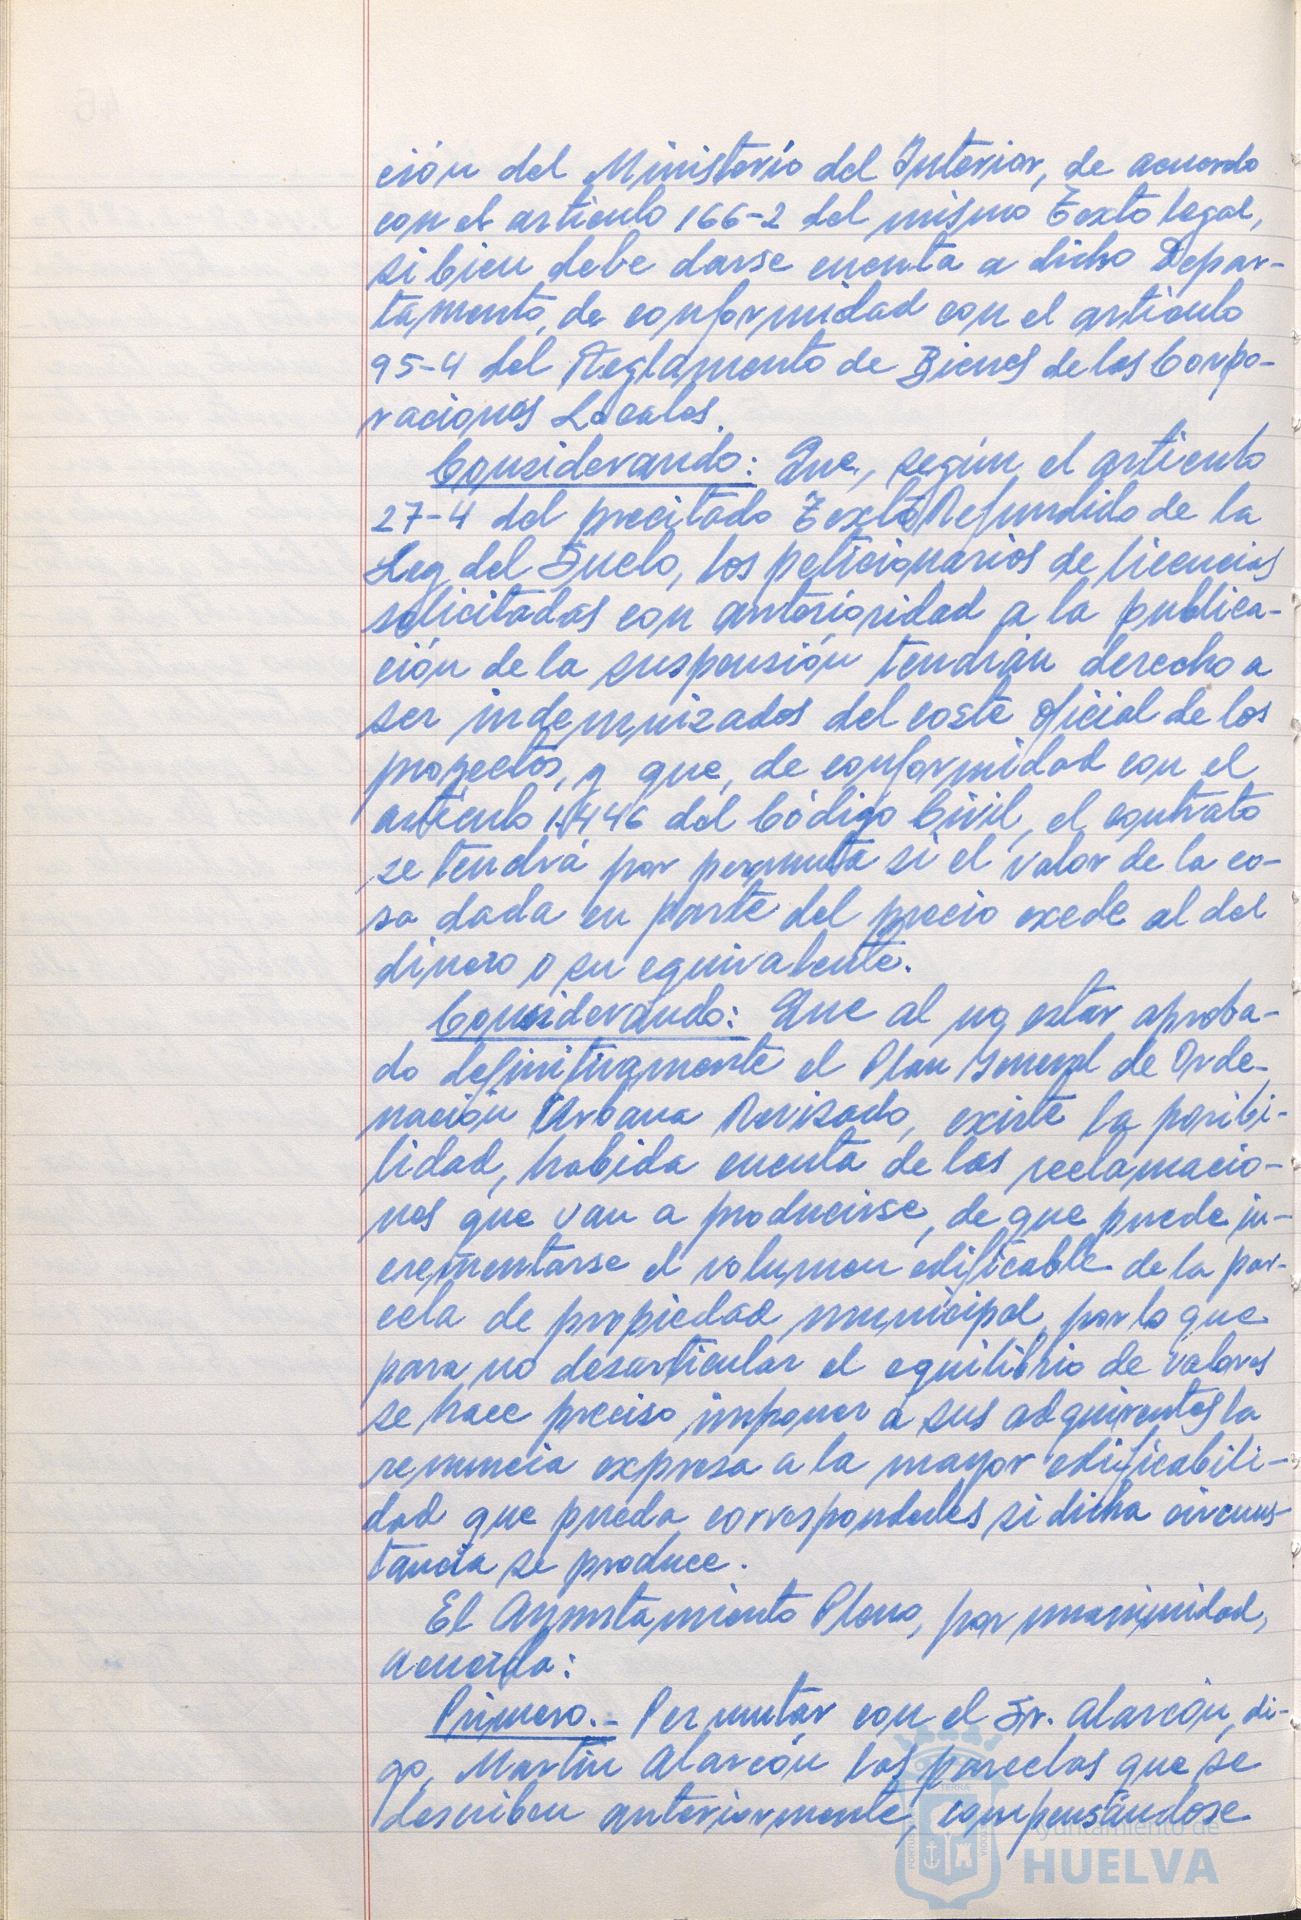 ción del Ministerio del Interior, de acuerdo
con el artículo 166-2 del mismo Texto legal,
si bien debe darse cuenta a dicho Depar-
tamento, de conformidad con el artículo
95-4 del Reglamento de Bienes de las Corpo-
raciones Locales.
Considerando: Que, según el artículo
27-4 del precitado Texto Refundido de la
Ley del Suelo, los peticionarios de licencias
solicitadas con anterioridad a la publica-
ción de la suspensión tendrán derecho a
ser indemnizados del coste oficial de los
proyectos, y que, de conformidad con el
artículo 1.446 del Código Civil, el contrato
se tendrá por permuta si el valor de la co-
sa dada en parte del precio excede al del
dinero o su equivalente.
Considerando: Que al no estar aproba-
do definitivamente el Plan General de Orde-
nación Urbana Revisado, existe la posibi-
lidad, habida cuenta de las reclamacio-
nes que van a producirse, de que puede in-
crementarse el volumen edificable de la par-
cela de propiedad municipal, por lo que
para no desarticular el equilibrio de valores
se hace preciso imponer a sus adquirentes la
renuncia expresa a la mayor edificabili-
dad que pueda corresponderles si dicha circuns-
tancia se produce.
El Ayuntamiento Pleno, por unanimidad,
acuerda:
Primero.- Permutar con el Sr. Alarcón, di-
go, Martín Alarcón las parcelas que se
describen anteriormente, compensándose
Ayuntamiento de
HUELVA